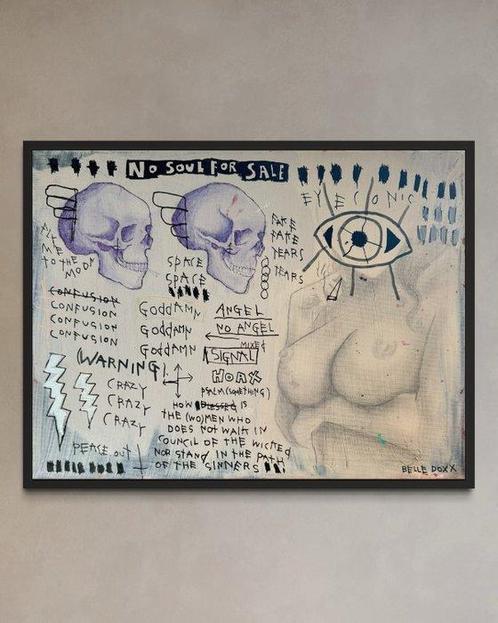 NO SOUL FOR SALE
EYECONIC
FAKE
FAKE
TEARS
TEARS
ME
TO THE
MOON
SPACE
SPACE
CONFUSION
CONFUSION
CONFUSION
CONFUSION
GODDAMN
GODDAMN
GODDAMN
ANGEL
NO ANGEL
MIXED
SIGNAL
HOAX
PSALM (SOMETHING)
(WARNING!)
CRAZY
CRAZY
CRAZY
HOW BLESSED IS
THE (WO)MEN WHO
DOES NOT WALK IN
COUNCIL OF THE WICKED
NOR STAND IN THE PATH
OF THE SINNERS
PEACE OUT
BELLE DOXX